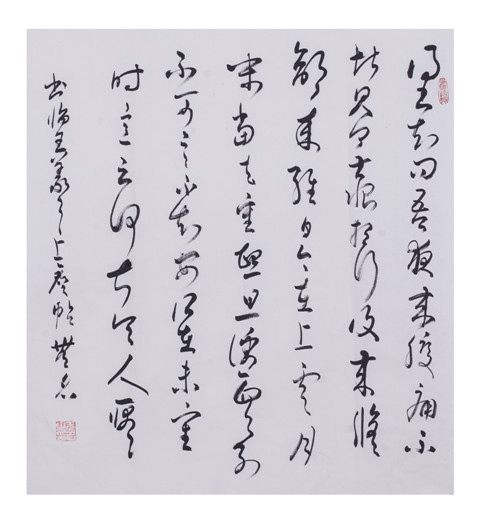 得書知問吾夜來腹痛不
堪見卿甚恨想行復來脩
齡來經日今在上虞月
末當去重熙旦便西與別
不可言不知安所在未審
時意云何甚令人耿耿
书臨王羲之上虞帖